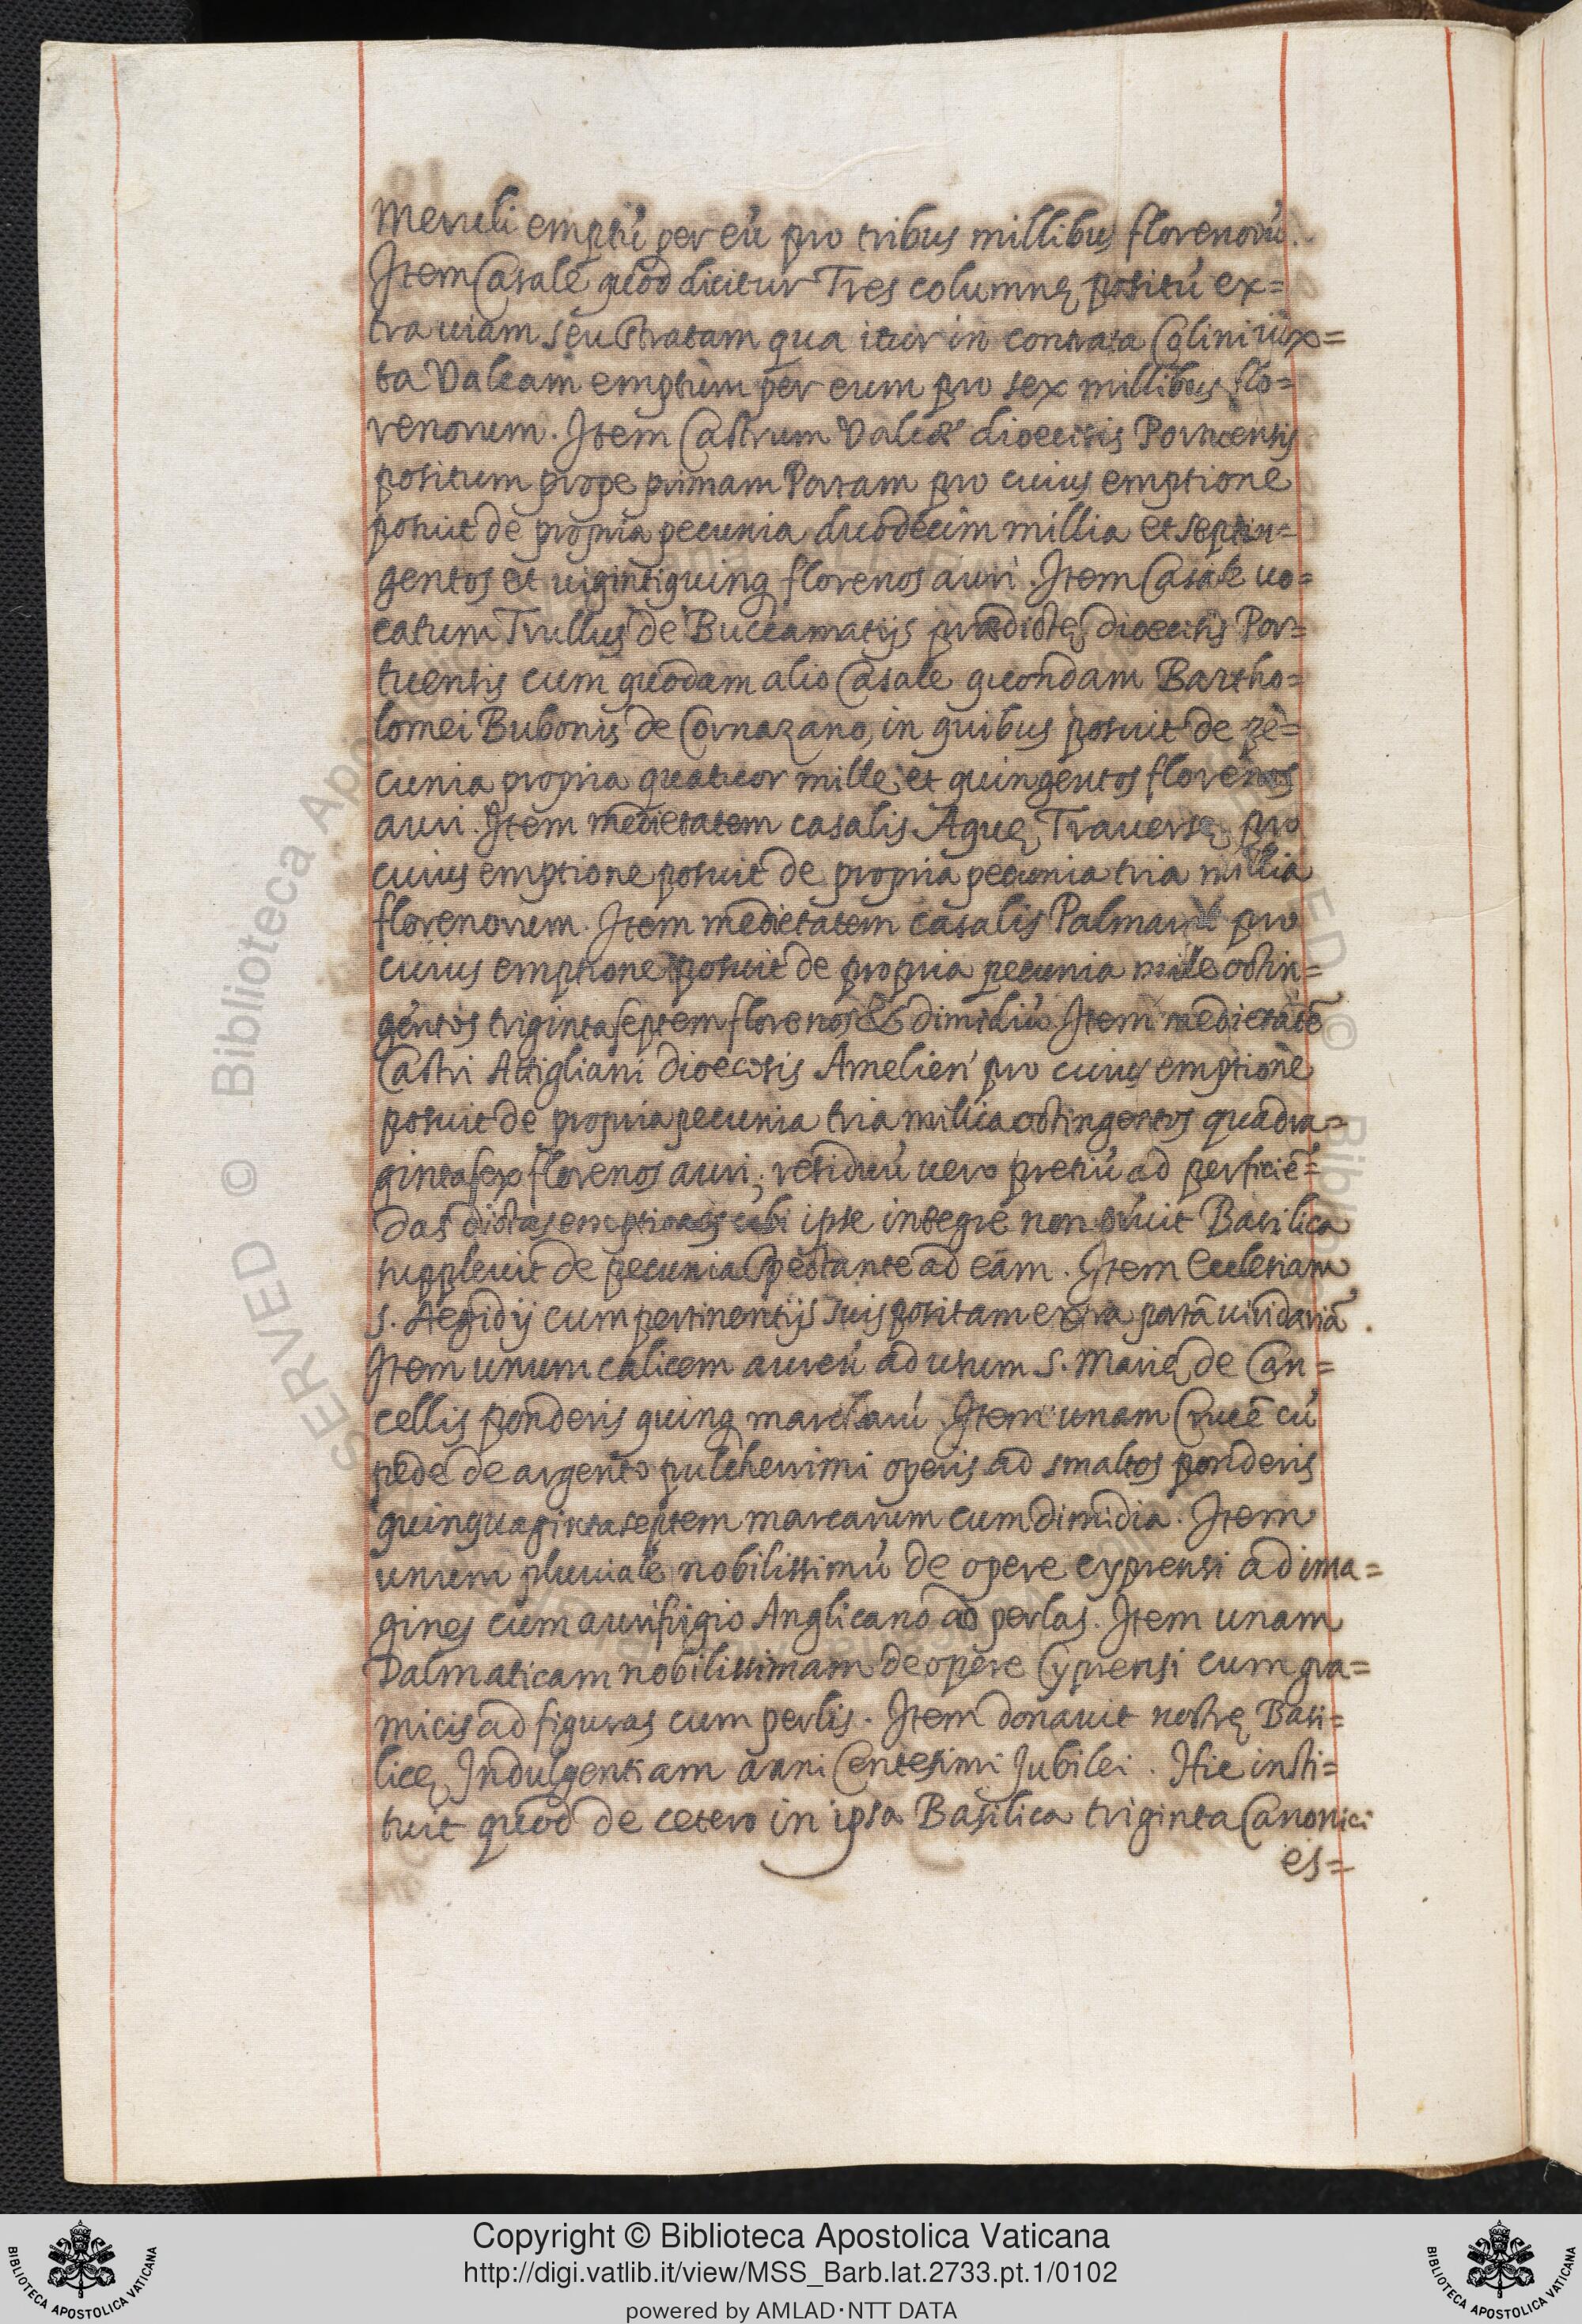 Meruli emptú per eú pro tribus millibus florenorú.
Item Casale quod dicitur Tres columnę positú ex=
tra uiam seu stratam qua itur in contrata Galini iux=
ta Valcam emptum per eum pro sex millibus flo=
renorum. Item Castrum Valcæ dioecesis Portuensis
positum prope primam Portam pro cuius emptione
posuit de propria pecunia duodecim millia et septin=
gentos et uigintiquinq florenos auri. Item Casale uo=
catum Trullus de Buccamatijs prædictę dioecesis Por=
tuensis cum quodam alio Casale quondam Bartho=
lomei Bubonis de Cornazano, in quibus posuit de pe=
cunia propria quatuor mille et quingentos florenos
auri. Item medietatem casalis Aquę Trauersę pro
cuius emptione posuit de propria pecunia tria millia
florenorum. Item medietatem casalis pro
cuius emptione posuit de propria pecunia mille octin=
gentos trigintaseptem florenos & dimidiú. Item medietatē
Castri Attigliani dioecesis Amelien' pro cuius emptione
posuit de propria pecunia tria millia octingentos quadra=
gintasex florenos auri; residuú uero pretiú ad perficiē=
das dictas emptiones ubi ipse integre non soluit Basilica
suppleuit de pecunia spectante ad eam. Item Ecclesiam
S. Aegidij cum pertinentijs suis positam extra portā uiridariā.
Item unum calicem aureú ad usum S. Marię de Can=
cellis ponderis quinq marcharú. Item unam Crucē cú
pede de argento pulcherrimi operis ad smaltos ponderis
quinquagintaseptem marcarum cum dimidia. Item
unum pluuiale nobilissimú de opere cyprensi ad ima=
gines cum aurifrigio Anglicano ad perlas. Item unam
Dalmaticam nobilissimam de opere Cyprensi cum gra=
micis ad figuras cum perlis. Item donauit nostrę Basi=
licę Indulgentiam anni Centesimi Jubilei. Hic insti=
tuit quod de cetero in ipsa Basilica triginta Canonici
es=
Copyright © Biblioteca Apostolica Vaticana
http://digi.vatlib.it/view/MSS_Barb.lat.2733.pt.1/0102
powered by AMLAD·NTT DATA
BIBLIOTECA APOSTOLICA VATICANA
BIBLIOTECA APOSTOLICA VATICANA